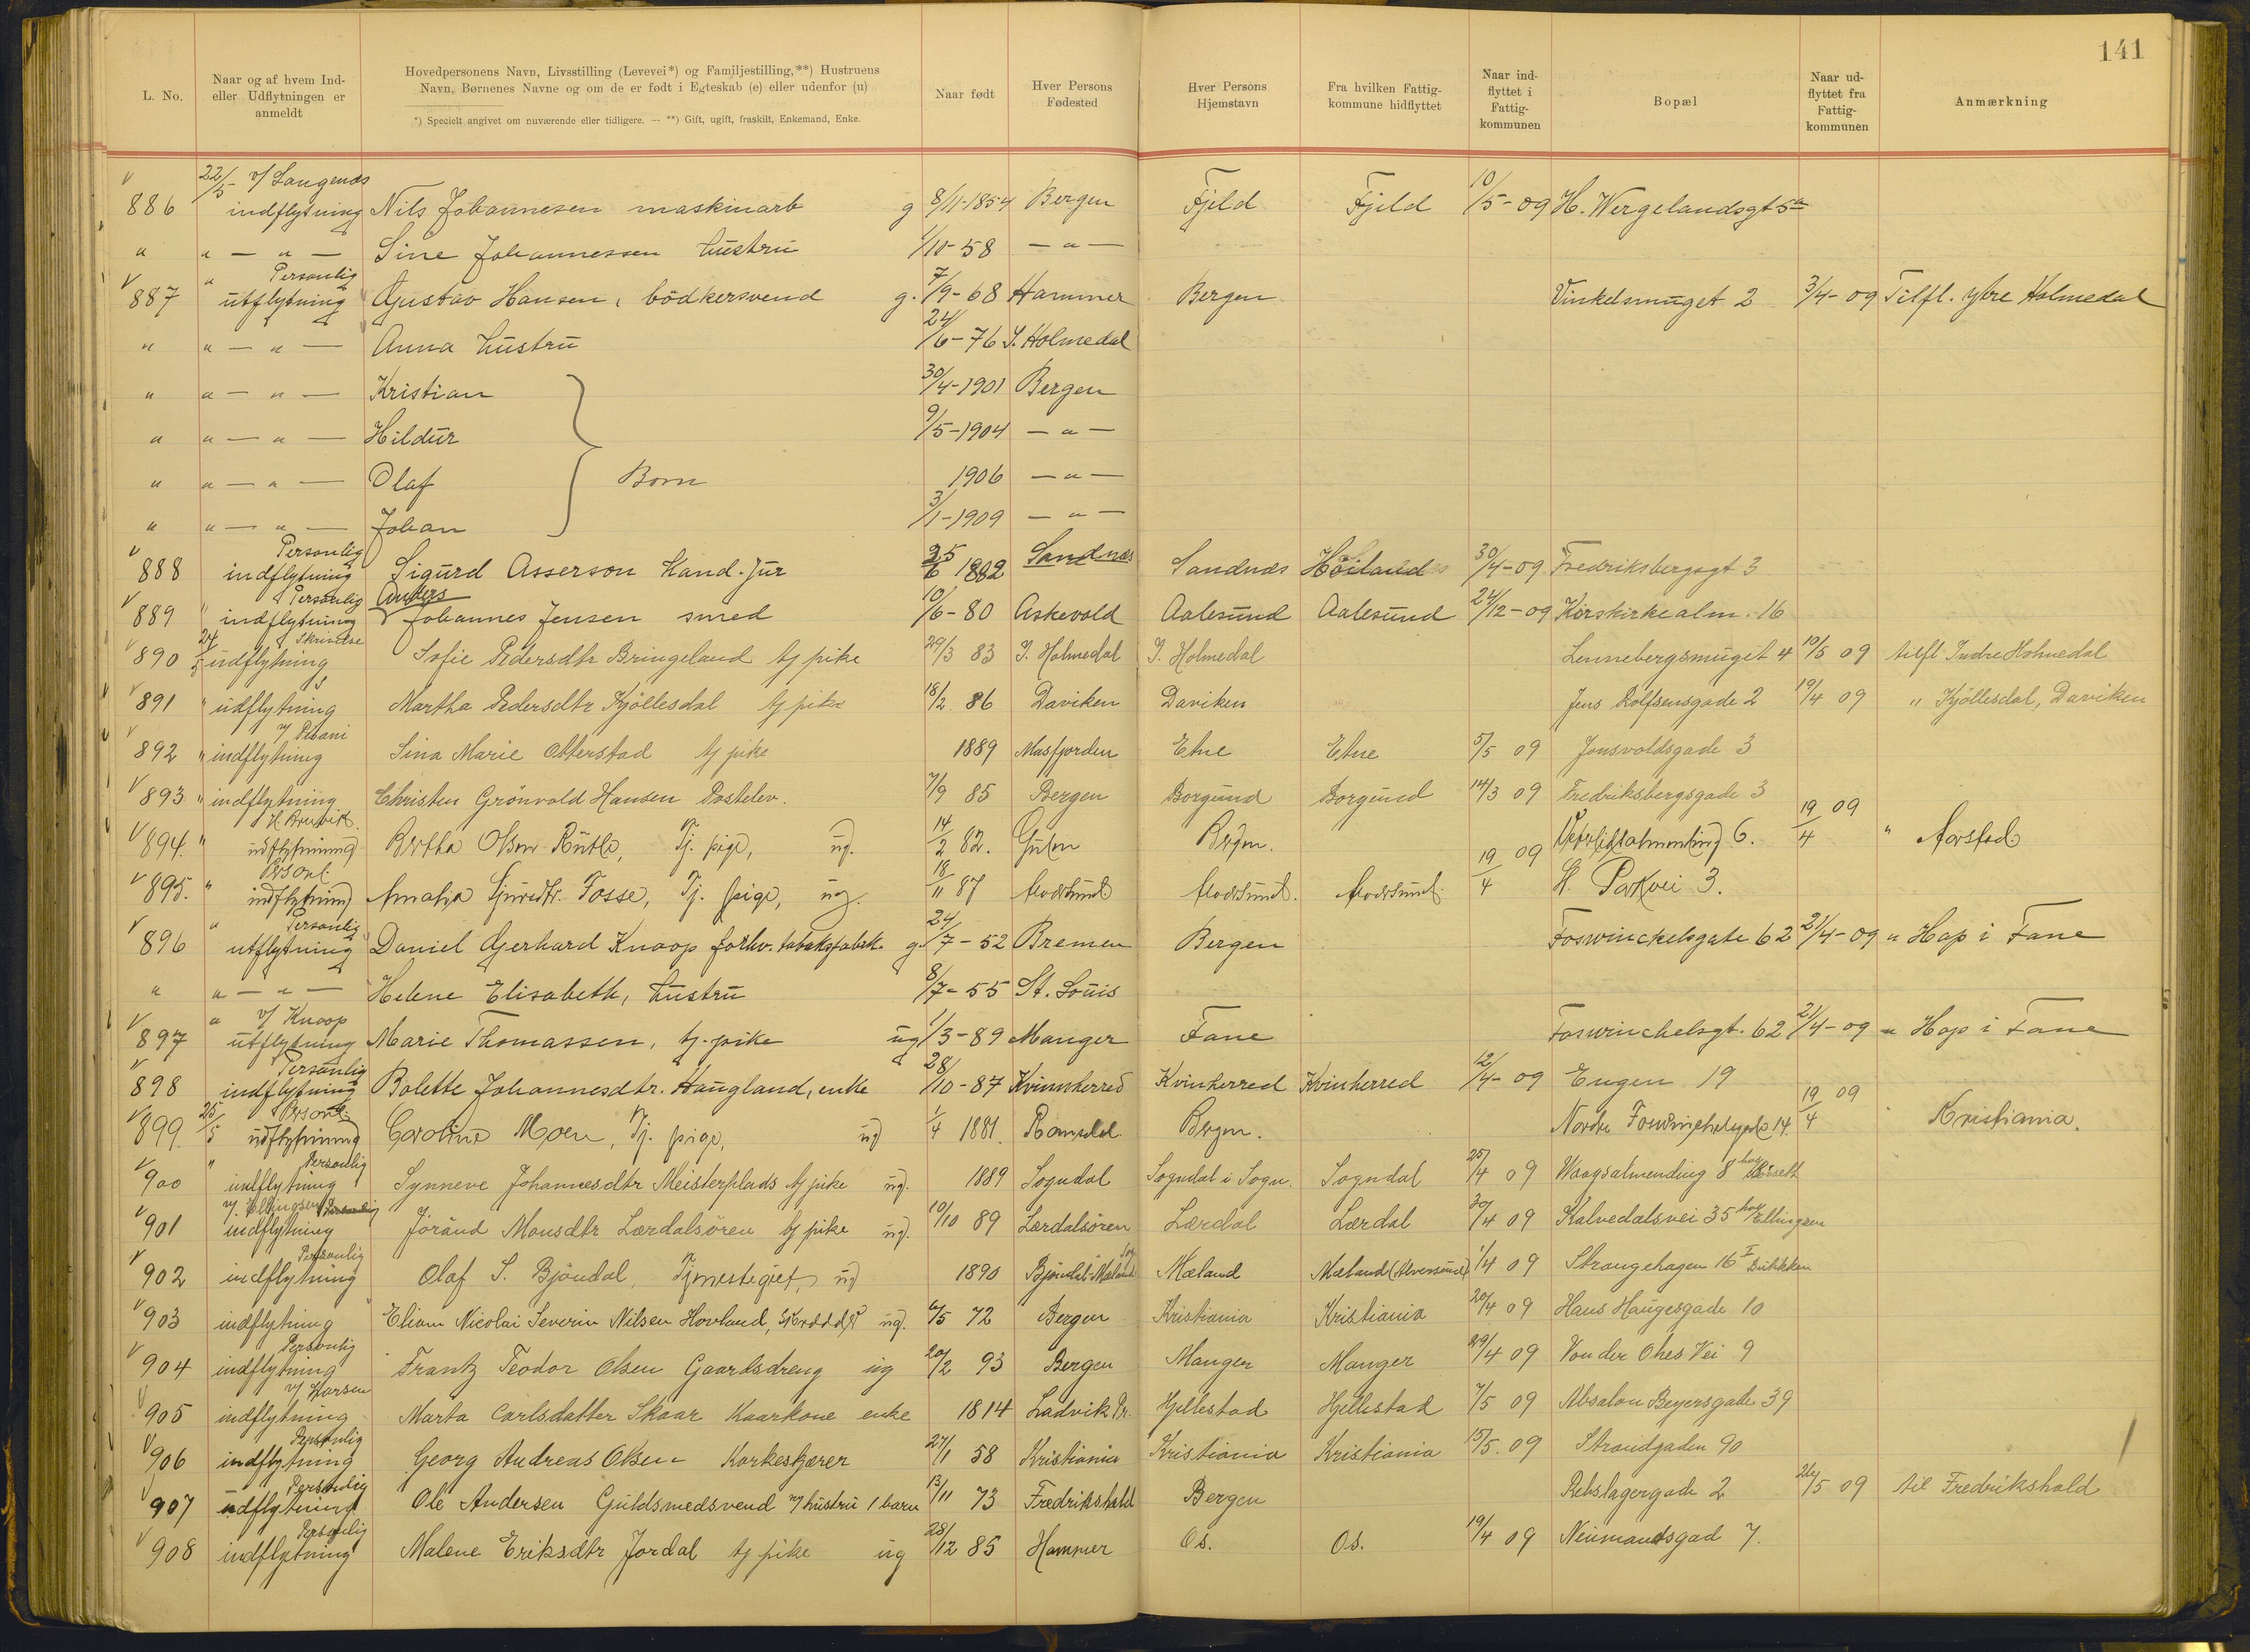 141
L. No.
Naar og af hvem Ind-
eller Udflytningen er
anmeldt
Hovedpersonens Navn, Livsstilling (Levevei*) og Familjestilling,**) Hustruens
Navn, Børnenes Navne og om de er født i Egteskab (e) eller udenfor (u)
*) Specielt angivet om nuværende eller tidligere. — **) Gift, ugift, fraskilt, Enkemand, Enke.
Naar født
Hver Persons
Fødested
Hver Persons
Hjemstavn
Fra hvilken Fattig-
kommune hidflyttet
Naar ind-
flyttet i
Fattig-
kommunen
Bopæl
Naar ud-
flyttet fra
Fattig-
kommunen
Anmærkning
22/5 v/ Langenæs
886 indflytning Nils Johannesen maskinarb g 8/11-1854 Bergen Fjeld Fjeld 10/5-09 H. Wergelandsgt 5a
" " — " — Sine Johannessen hustru 1/10-58 — " —
" Personlig
887 utflytning Gustav Hansen, bödkersvend g. 7/9-68 Hammer Bergen Vinkelsmuget 2 3/4-09 Tilfl. ytre Holmedal
" " — " — Anna hustru 24/6-76 Y. Holmedal
" " — " — Kristian 30/4-1901 Bergen
" " — " — Hildur 9/5-1904 — " —
" " — " — Olaf Born 1906 — " —
" " — " — Johan 3/1-1909 — " —
Personlig
888 indflytning Sigurd Asserson Kand. jur 25/6 1882 Sandnæs Sandnæs Höiland 30/4-09 Fredriksbergsgt 3
" Personlig Anders
889 indflytning Johannes Jensen smed 10/6-80 Askevold Aalesund Aalesund 24/12-09 Korskirkealm. 16
24/5 Skrivelse
890 udflytning Sofie Pedersdtr Bringeland tj pike 29/3 83 I. Holmedal I. Holmedal Lennebergsmuget 4 10/5 09 tilfl Indre Holmedal
891 " udflytning Martha Pedersdtr Kjöllesdal tj pike 18/2 86 Daviken Daviken Jens Rolfsensgade 2 19/4 09 " Kjöllesdal, Daviken
892 " indflytning Sina Marie Otterstad tj pike 1889 Masfjorden Etne Etne 5/5 09 Jonsvoldsgade 3
893 " indflytning Christen Grönvold Hansen Postelev. 7/9 85 Bergen Borgund Borgund 14/3 09 Fredriksbergsgade 3
894. " udflytning Bertha Olsen Rutle, Tj. pige, ug. 14/2 82. Gulen Bergen. 6. 19/4 09 " Aarstad.
Personl.
895. " indflytning Amalia Sjursdtr. Fosse, Tj. pige, ug. 18/11 87 19/4 09 H. Parkvei 3.
" Personlig
896 utflytning Daniel Gerhard Knoop forhv. tobaksfabrk. g. 24/7-52 Bremen Bergen Foswinckelsgate 62 21/4-09 " Hop i Fane
" " — " — Helene Elisabeth, hustru 8/7-55 St. Louis
" v/ Knoop
897 utflytning Marie Thomassen, tj. pike ug 1/3-89 Manger Fane Foswinckelsgt. 62 21/4-09 " Hop i Fane
Personlig
898 indflytning Bolette Johannesdtr. Haugland, enke 28/10-87 Kvinnherred Kvinherred Kvinherred 12/4-09 Engen 19
25/5 Personl.
899. udflytning Caroline Moen, Tj. pige, ug 1/4 1881. Romsdal Bergen. Nordre Foswinckelsgade 14. 19/4 09 Kristiania.
" Personlig
900 indflytning Synneve Johannesdtr Meisterplads tj pike ug. 1889 Sogndal Sogndal i Sogn. Sogndal 25/4 09 Vaagsalmending 8
v/ Ellingsen
901 indflytning Jörånd Monsdtr Lærdalsören tj pike ug. 10/10 89 Lærdalsören Lærdal Lærdal 30/4 09 Kalvedalsvei 35 hos Ellingsen
Personlig
902 indflytning Olaf S. Bjöndal, ug 1890 Bjöndal-Mæland Mæland Mæland (Alversund) 1/4 09 Strangehagen 16 I
903 indflytning Eliam Nicolai Severin Nilsen Hovland, ug. 6/5 72 Bergen Kristiania Kristiania 20/4 09 Hans Haugesgade 10
Personlig
904 indflytning Frantz Teodor Olsen Gaardsdreng ug 20/2 93 Bergen Manger Manger 29/4 09 Von der Ohes Vei 9
v/ Larsen
905 indflytning Marta Carlsdatter Skaar Kaarkone enke 1814 Ladvik Pr. Hjellestad Hjellestad 7/5 09 Absalon Beyersgade 39
Personlig
906 indflytning Georg Andreas Olsen Korkeskjærer 27/1 58 Kristiania Kristiania Kristiania 15/5. 09 Strandgaden 90
Personlig
907 udflytning Ole Andersen Guldsmedsvend m/ hustru 1 barn 13/11 73 Fredrikshald Bergen Rebslagergade 2 26/5 09 til Fredrikshald
Personlig
908 indflytning Malene Eriksdtr Jordal tj pike ug 28/12 85 Hammer Os. Os. 19/4 09 Neumandsgad 7.